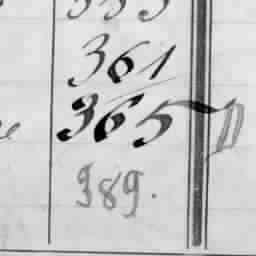 361
365
389.